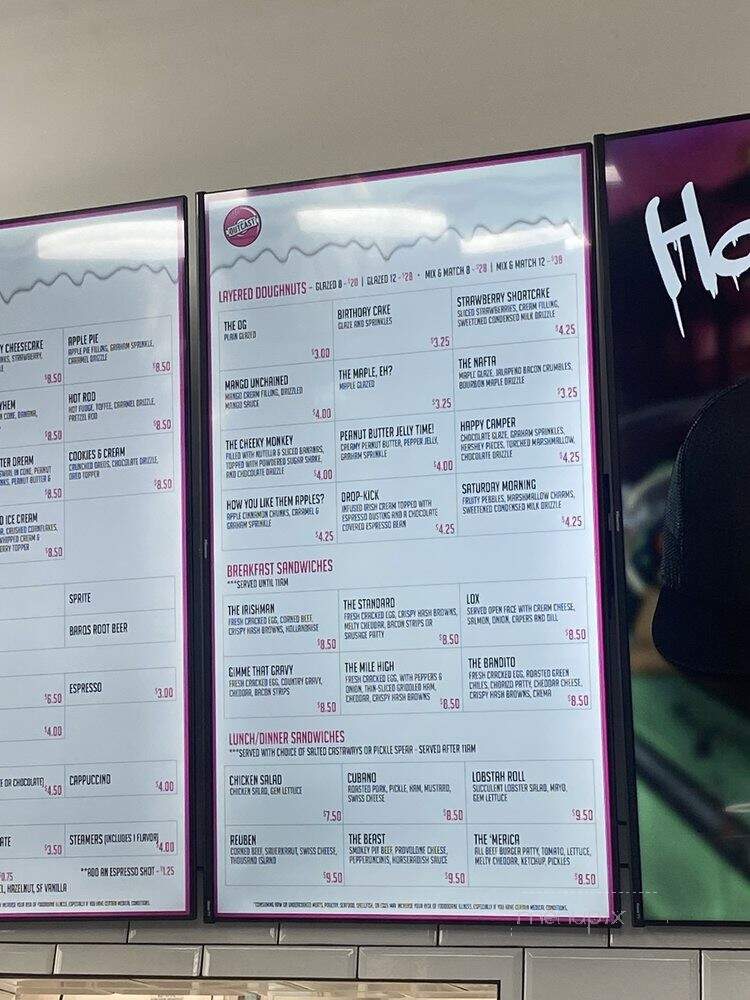 Y CHEESECAKE
NKS, STRAWBERRY,
$8.50
APPLE PIE
APPLE PIE FILLING, GRAHAM SPRINKLE,
CARAMEL DRIZZLE
$8.50
HEM
CONE, BANANA,
$8.50
HOT ROD
HOT FUDGE, TOFFEE, CARAMEL DRIZZLE,
PRETZEL ROD
$8.50
TER DREAM
IN CONE, PEANUT
NKS, PEANUT BUTTER &
$8.50
COOKIES & CREAM
CRUNCHED OREOS, CHOCOLATE DRIZZLE,
OREO TOPPER
$8.50
D ICE CREAM
CRUSHED CORNFLAKES,
WHIPPED CREAM &
ERRY TOPPER
$8.50
SPRITE
BARQS ROOT BEER
$6.50
ESPRESSO
$3.00
$4.00
E OR CHOCOLATE)
$4.50
CAPPUCCINO
$4.00
ATE
$3.50
STEAMERS (INCLUDES 1 FLAVOR)
$4.00
$0.75
**ADD AN ESPRESSO SHOT - $1.25
EL, HAZELNUT, SF VANILLA
INCREASE YOUR RISK OF FOODBORNE ILLNESS, ESPECIALLY IF YOU HAVE CERTAIN MEDICAL CONDITIONS.
OUTCAST
LAYERED DOUGHNUTS - GLAZED 8 - $20 | GLAZED 12 - $28 • MIX & MATCH 8 - $28 | MIX & MATCH 12 - $38
THE OG
PLAIN GLAZED
$3.00
BIRTHDAY CAKE
GLAZE AND SPRINKLES
$3.25
STRAWBERRY SHORTCAKE
SLICED STRAWBERRIES, CREAM FILLING,
SWEETENED CONDENSED MILK DRIZZLE
$4.25
MANGO UNCHAINED
MANGO CREAM FILLING, DRIZZLED
MANGO SAUCE
$4.00
THE MAPLE, EH?
MAPLE GLAZED
$3.25
THE NAFTA
MAPLE GLAZE, JALAPENO BACON CRUMBLES,
BOURBON MAPLE DRIZZLE
$3.25
THE CHEEKY MONKEY
FILLED WITH NUTELLA & SLICED BANANAS,
TOPPED WITH POWDERED SUGAR SHAKE,
AND CHOCOLATE DRIZZLE
$4.00
PEANUT BUTTER JELLY TIME!
CREAMY PEANUT BUTTER, PEPPER JELLY,
GRAHAM SPRINKLE
$4.00
HAPPY CAMPER
CHOCOLATE GLAZE, GRAHAM SPRINKLES,
HERSHEY PIECES, TORCHED MARSHMALLOW,
CHOCOLATE DRIZZLE
$4.25
HOW YOU LIKE THEM APPLES?
APPLE CINNAMON CHUNKS, CARAMEL &
GRAHAM SPRINKLE
$4.25
DROP-KICK
INFUSED IRISH CREAM TOPPED WITH
ESPRESSO DUSTING AND A CHOCOLATE
COVERED ESPRESSO BEAN
$4.25
SATURDAY MORNING
FRUITY PEBBLES, MARSHMALLOW CHARMS,
SWEETENED CONDENSED MILK DRIZZLE
$4.25
BREAKFAST SANDWICHES
***SERVED UNTIL 11AM
THE IRISHMAN
FRESH CRACKED EGG, CORNED BEEF,
CRISPY HASH BROWNS, HOLLANDAISE
$8.50
THE STANDARD
FRESH CRACKED EGG, CRISPY HASH BROWNS,
MELTY CHEDDAR, BACON STRIPS OR
SAUSAGE PATTY
$8.50
LOX
SERVED OPEN FACE WITH CREAM CHEESE,
SALMON, ONION, CAPERS AND DILL
$8.50
GIMME THAT GRAVY
FRESH CRACKED EGG, COUNTRY GRAVY,
CHEDDAR, BACON STRIPS
$8.50
THE MILE HIGH
FRESH CRACKED EGG, WITH PEPPERS &
ONION, THIN-SLICED GRIDDLED HAM,
CHEDDAR, CRISPY HASH BROWNS
$8.50
THE BANDITO
FRESH CRACKED EGG, ROASTED GREEN
CHILES, CHORIZO PATTY, CHEDDAR CHEESE,
CRISPY HASH BROWNS, CREMA
$8.50
LUNCH/DINNER SANDWICHES
***SERVED WITH CHOICE OF SALTED CASTAWAYS OR PICKLE SPEAR - SERVED AFTER 11AM
CHICKEN SALAD
CHICKEN SALAD, GEM LETTUCE
$7.50
CUBANO
ROASTED PORK, PICKLE, HAM, MUSTARD,
SWISS CHEESE
$8.50
LOBSTAH ROLL
SUCCULENT LOBSTER SALAD, MAYO,
GEM LETTUCE
$9.50
REUBEN
CORNED BEEF, SAUERKRAUT, SWISS CHEESE,
THOUSAND ISLAND
$9.50
THE BEAST
SMOKEY PIT BEEF, PROVOLONE CHEESE,
PEPPERUNCINIS, HORSERADISH SAUCE
$9.50
THE 'MERICA
ALL BEEF BURGER PATTY, TOMATO, LETTUCE,
MELTY CHEDDAR, KETCHUP, PICKLES
$8.50
*CONSUMING RAW OR UNDERCOOKED MEATS, POULTRY, SEAFOOD, SHELLFISH, OR EGGS MAY INCREASE YOUR RISK OF FOODBORNE ILLNESS, ESPECIALLY IF YOU HAVE CERTAIN MEDICAL CONDITIONS.
Ho
menupix